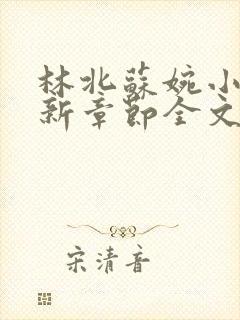 林北蘇婉小
新章節全文
宋清音